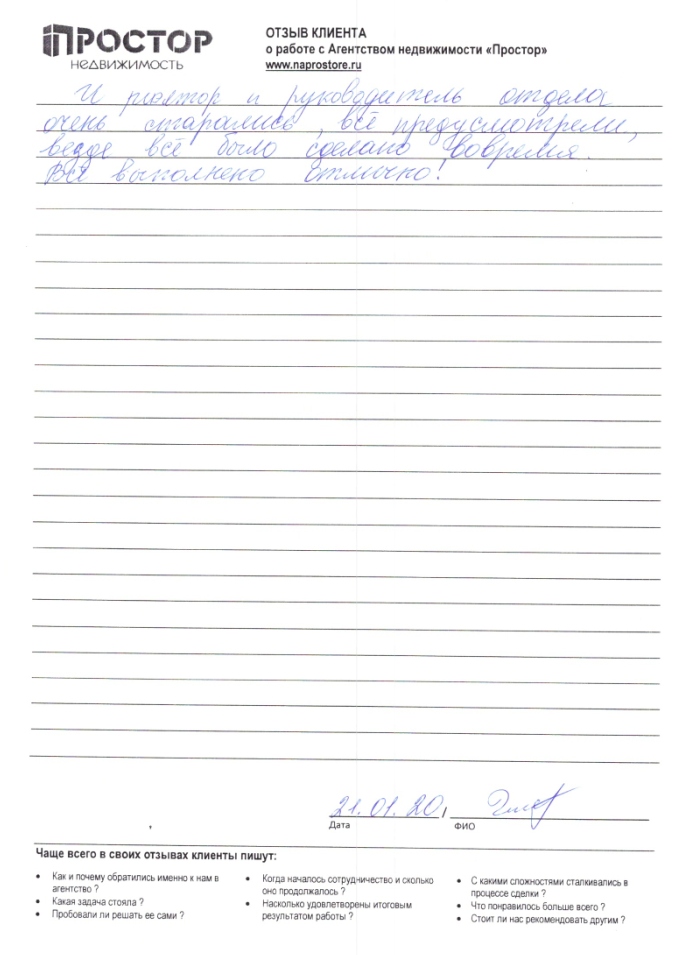 ПРОСТОР
НЕДВИЖИМОСТЬ
ОТЗЫВ КЛИЕНТА
о работе с Агентством недвижимости «Простор»
www.naprostore.ru
И риэлтор и руководитель отдела
очень старались, всё предусмотрели,
везде всё было сделано вовремя.
Всё выполнено отлично!
21.01.20 /
Дата
ФИО
Чаще всего в своих отзывах клиенты пишут:
• Как и почему обратились именно к нам в
агентство ?
• Какая задача стояла ?
• Пробовали ли решать ее сами ?
• Когда началось сотрудничество и сколько
оно продолжалось ?
• Насколько удовлетворены итоговым
результатом работы ?
• С какими сложностями сталкивались в
процессе сделки ?
• Что понравилось больше всего ?
• Стоит ли нас рекомендовать другим ?